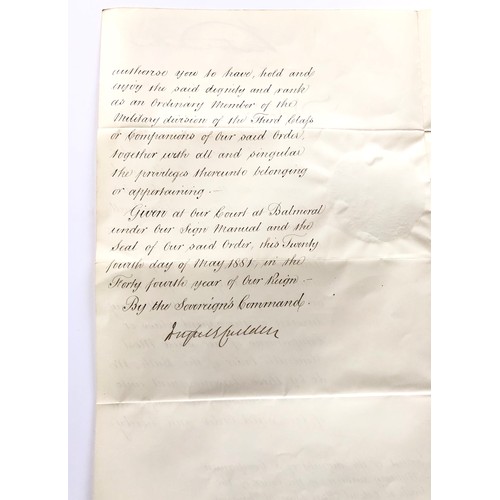 authorise you to have, hold and
enjoy the said dignity and rank
as an Ordinary Member of the
Military division of the Third Class
or Companions of Our said Order,
together with all and singular
the privileges thereunto belonging
or appertaining.—
Given at Our Court at Balmoral
under Our Sign Manual and the
Seal of Our said Order, this Twenty
fourth day of May 1881, in the
Forty fourth year of Our Reign.—
By the Sovereign's Command.